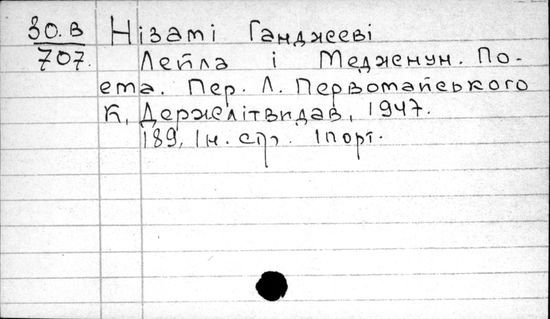 30.В Нізамі Ганджеєві
707. Лейла і Меджнун. По-
ема. Пер. Л. Первомайського
К, Держлітвидав, 1947.
189, Ін. стр. Іпорт.